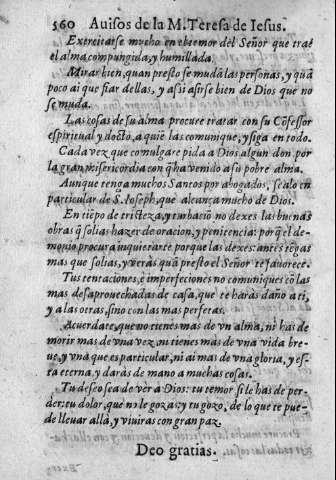 560 Auisos de la M. Teresa de Iesus.
Exercitarse mucho en el temor del Señor que trae
el alma compungida, y humillada.
Mirar bien, quan presto se mudã las personas, y quã
poco ai que fiar dellas, y assi asirse bien de Dios que no
se muda.
Las cosas de su alma procure tratar con su Cõfessor
espiritual y docto, a quiẽ las comunique, y siga en todo.
Cada vez que comulgare pida a Dios algun don, por
la gran misericordia con q̃ ha venido a su pobre alma.
Aunque tenga muchos Santos por abogados, sealo en
particular de S. Ioseph, que alcança mucho de Dios.
En tiẽpo de tristeza, y turbaciõ no dexes las buenas
obras q̃ solias hazer de oracion, y penitencia: porq̃ el de-
monio procura inquietarte porque las dexes: antes tẽgas
mas que solias, y veràs quã presto el Señor te fauorece.
Tus tentaciones, è imperfeciones no comuniques cõ las
mas desaprouechadas de casa, que te haràs daño a ti,
y a las otras, sino con las mas perfetas.
Acuerdate, que no tienes mas de vn alma, ni has de
morir mas de vna vez, ni tienes mas de vna vida bre-
ue, y vna que es particular, ni ai mas de vna gloria, y es-
ta eterna, y daràs de mano a muchas cosas.
Tu deseo sea de ver a Dios: tu temor si le has de per-
der: tu dolor, que no le gozas: y tu gozo, de lo que te pue-
de lleuar allà, y viuiras con gran paz.
Deo gratias.